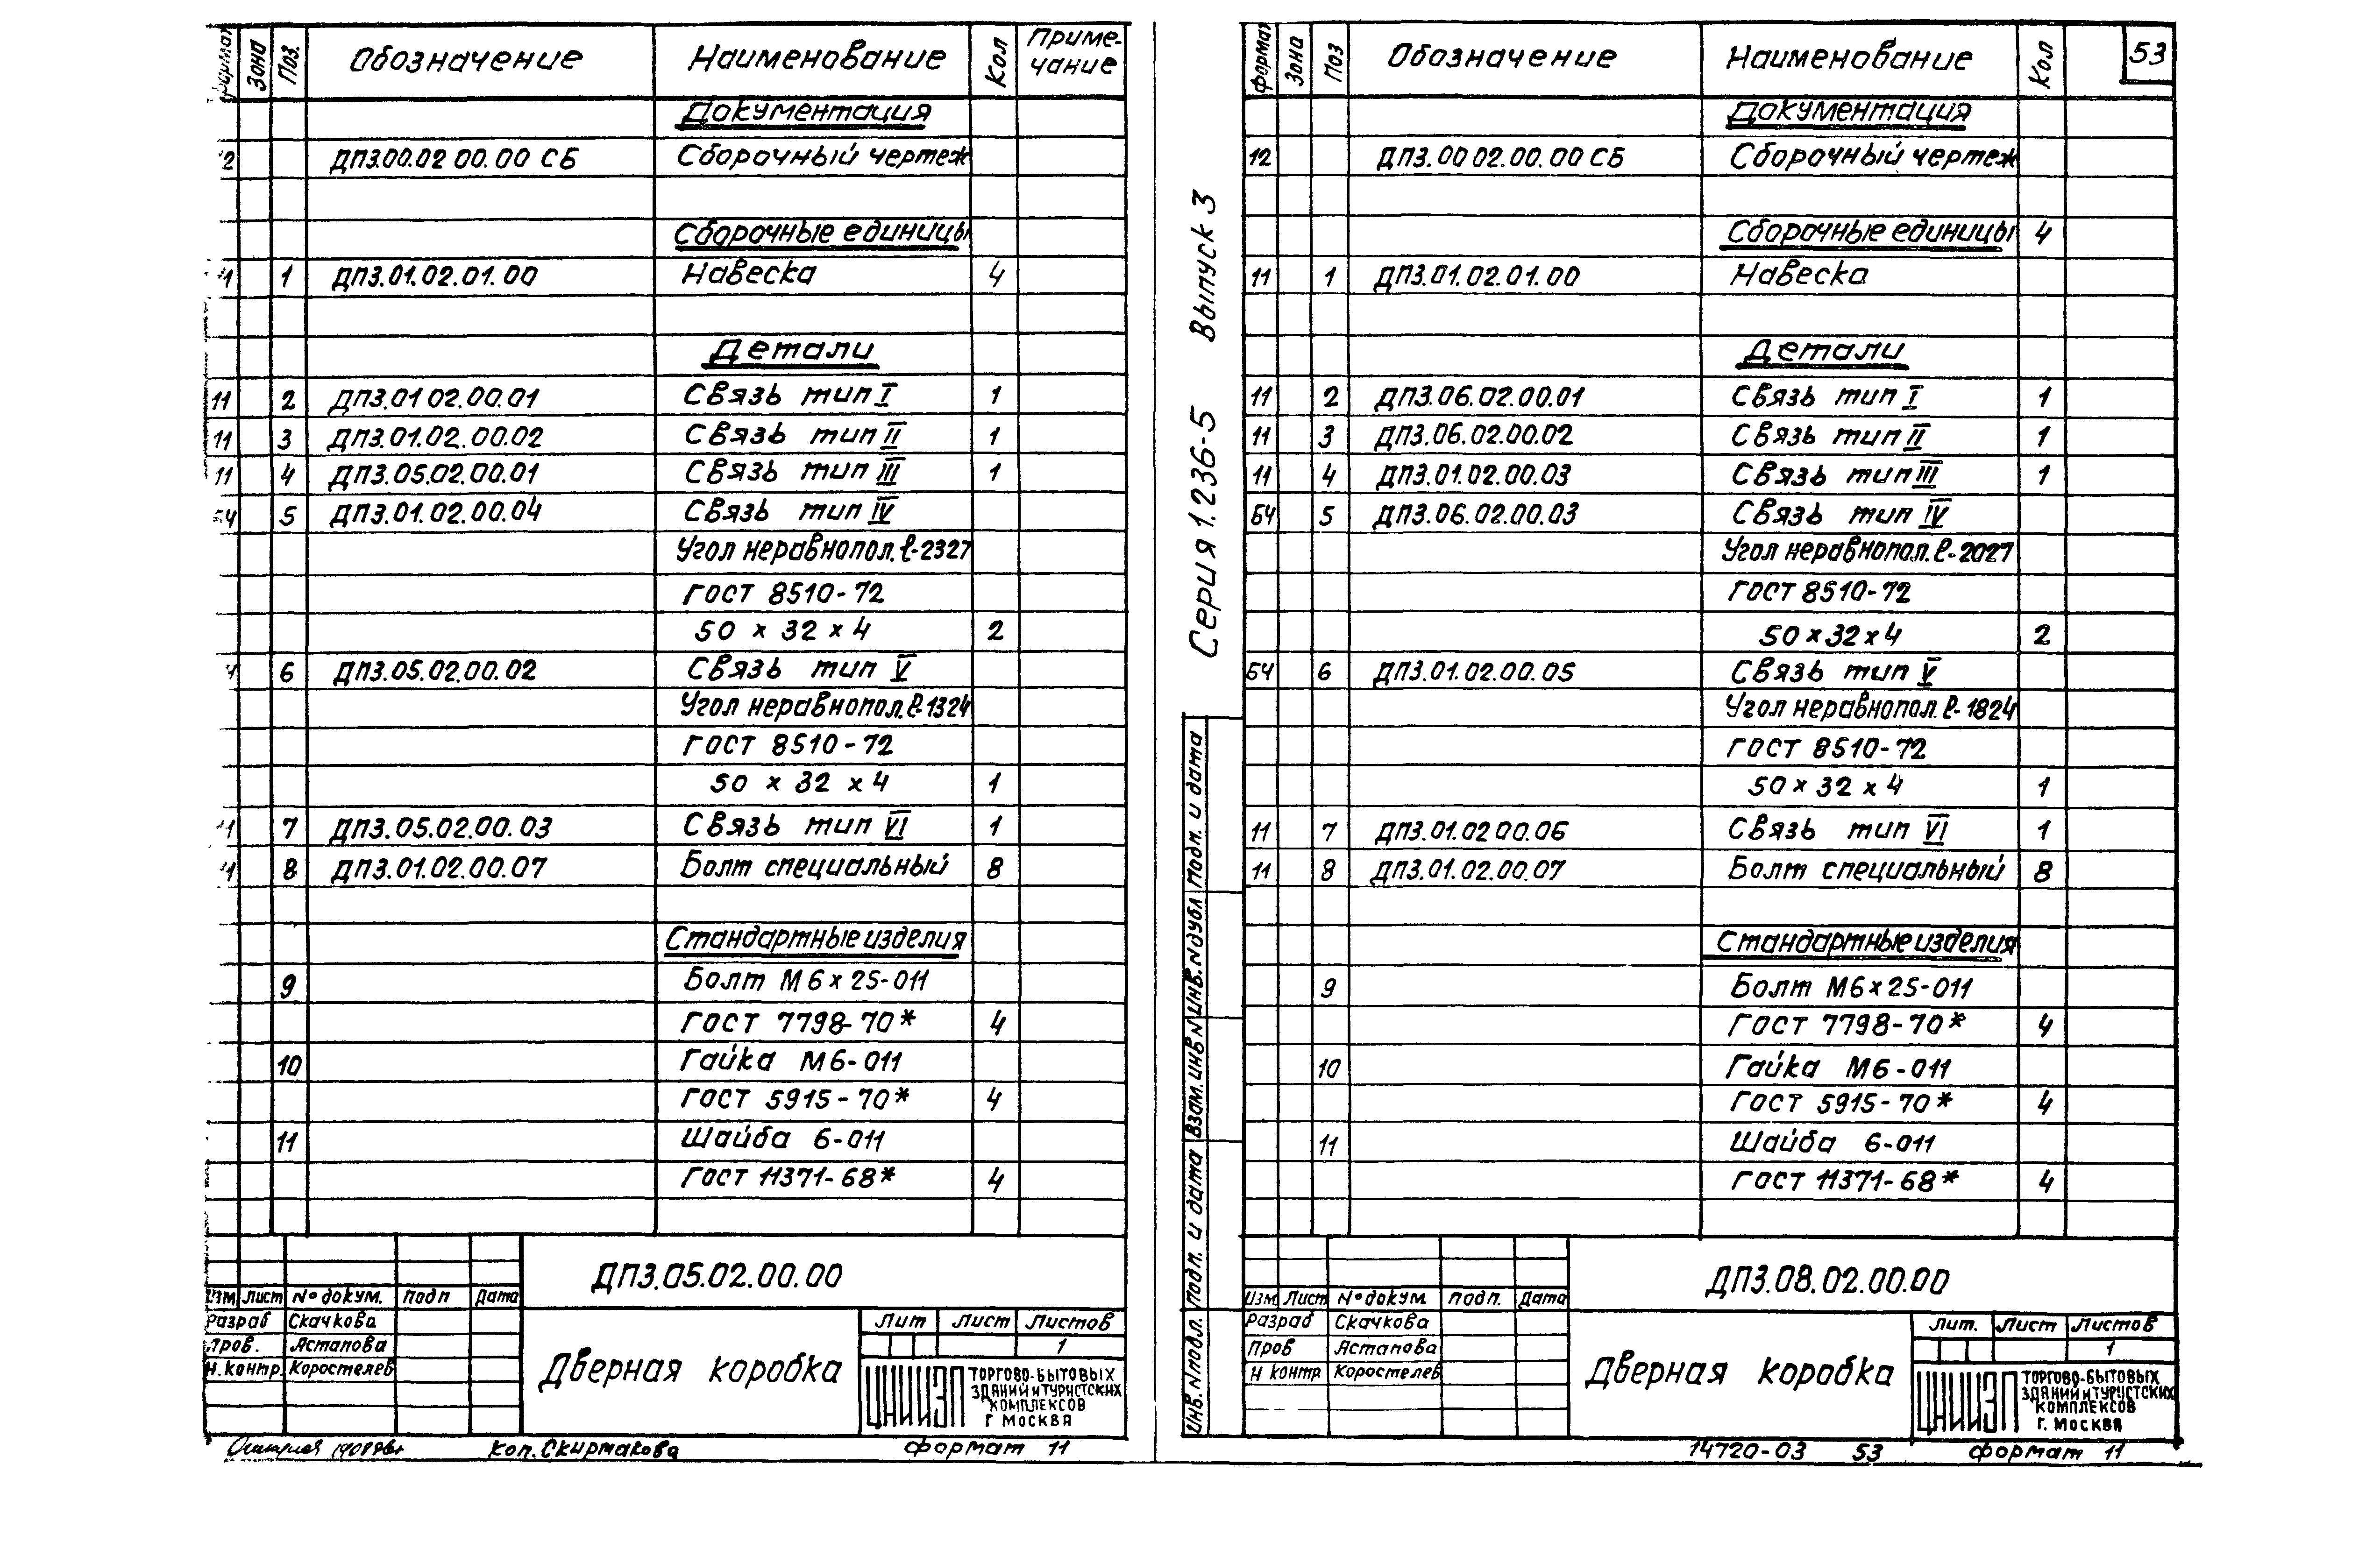 Формат Зона Поз. Обозначение Наименование Кол Приме-чание
Документация
12 ДП3.00.02 00.00 СБ Сборочный чертеж
Сборочные единицы
11 1 ДП3.01.02.01.00 Навеска 4
Детали
11 2 ДП3.01 02.00.01 Связь тип I 1
11 3 ДП3.01.02.00.02 Связь тип II 1
11 4 ДП3.05.02.00.01 Связь тип III 1
БЧ 5 ДП3.01.02.00.04 Связь тип IV
Угол неравнопол. ℓ-2327
ГОСТ 8510-72
50 х 32 х 4 2
6 ДП3.05.02.00.02 Связь тип V
Угол неравнопол. ℓ-1324
ГОСТ 8510-72
50 х 32 х 4 1
11 7 ДП3.05.02.00.03 Связь тип VI 1
11 8 ДП3.01.02.00.07 Болт специальный 8
Стандартные изделия
9 Болт М6х25-011
ГОСТ 7798-70* 4
10 Гайка М6-011
ГОСТ 5915-70* 4
11 Шайба 6-011
ГОСТ 11371-68* 4
ДП3.05.02.00.00
Изм Лист № докум. Подп Дата
Разраб Скачкова
Пров. Астапова
Н.контр. Коростелев
Дверная коробка
Лит Лист Листов
1
ЦНИИЭП ТОРГОВО-БЫТОВЫХ
ЗДАНИЙ и ТУРИСТСКИХ
КОМПЛЕКСОВ
Г МОСКВА
коп. Скирмакова формат 11
Серия 1.236-5 Выпуск 3
Инв. № подл. Подп. и дата Взам. инв № Инв. № дубл Подп. и дата
Формат Зона Поз Обозначение Наименование Кол 53
Документация
12 ДП3.00 02.00.00 СБ Сборочный чертеж
Сборочные единицы 4
11 1 ДП3.01.02.01.00 Навеска
Детали
11 2 ДП3.06.02.00.01 Связь тип I 1
11 3 ДП3.06.02.00.02 Связь тип II 1
11 4 ДП3.01.02.00.03 Связь тип III 1
БЧ 5 ДП3.06.02.00.03 Связь тип IV
Угол неравнопол. ℓ-2027
ГОСТ 8510-72
50х32х4 2
БЧ 6 ДП3.01.02.00.05 Связь тип V
Угол неравнопол. ℓ-1824
ГОСТ 8510-72
50 х 32 х 4 1
11 7 ДП3.01.02 00.06 Связь тип VI 1
11 8 ДП3.01.02.00.07 Болт специальный 8
Стандартные изделия
9 Болт М6х25-011
ГОСТ 7798-70* 4
10 Гайка М6-011
ГОСТ 5915-70* 4
11 Шайба 6-011
ГОСТ 11371-68* 4
ДП3.08.02.00.00
Изм Лист № докум. подп. Дата
Разраб Скачкова
Пров Астапова
Н контр Коростелев
Дверная коробка
Лит. Лист Листов
1
ЦНИИЭП ТОРГОВО-БЫТОВЫХ
ЗДАНИЙ и ТУРИСТСКИХ
КОМПЛЕКСОВ
Г. МОСКВА
14720-03 53 формат 11